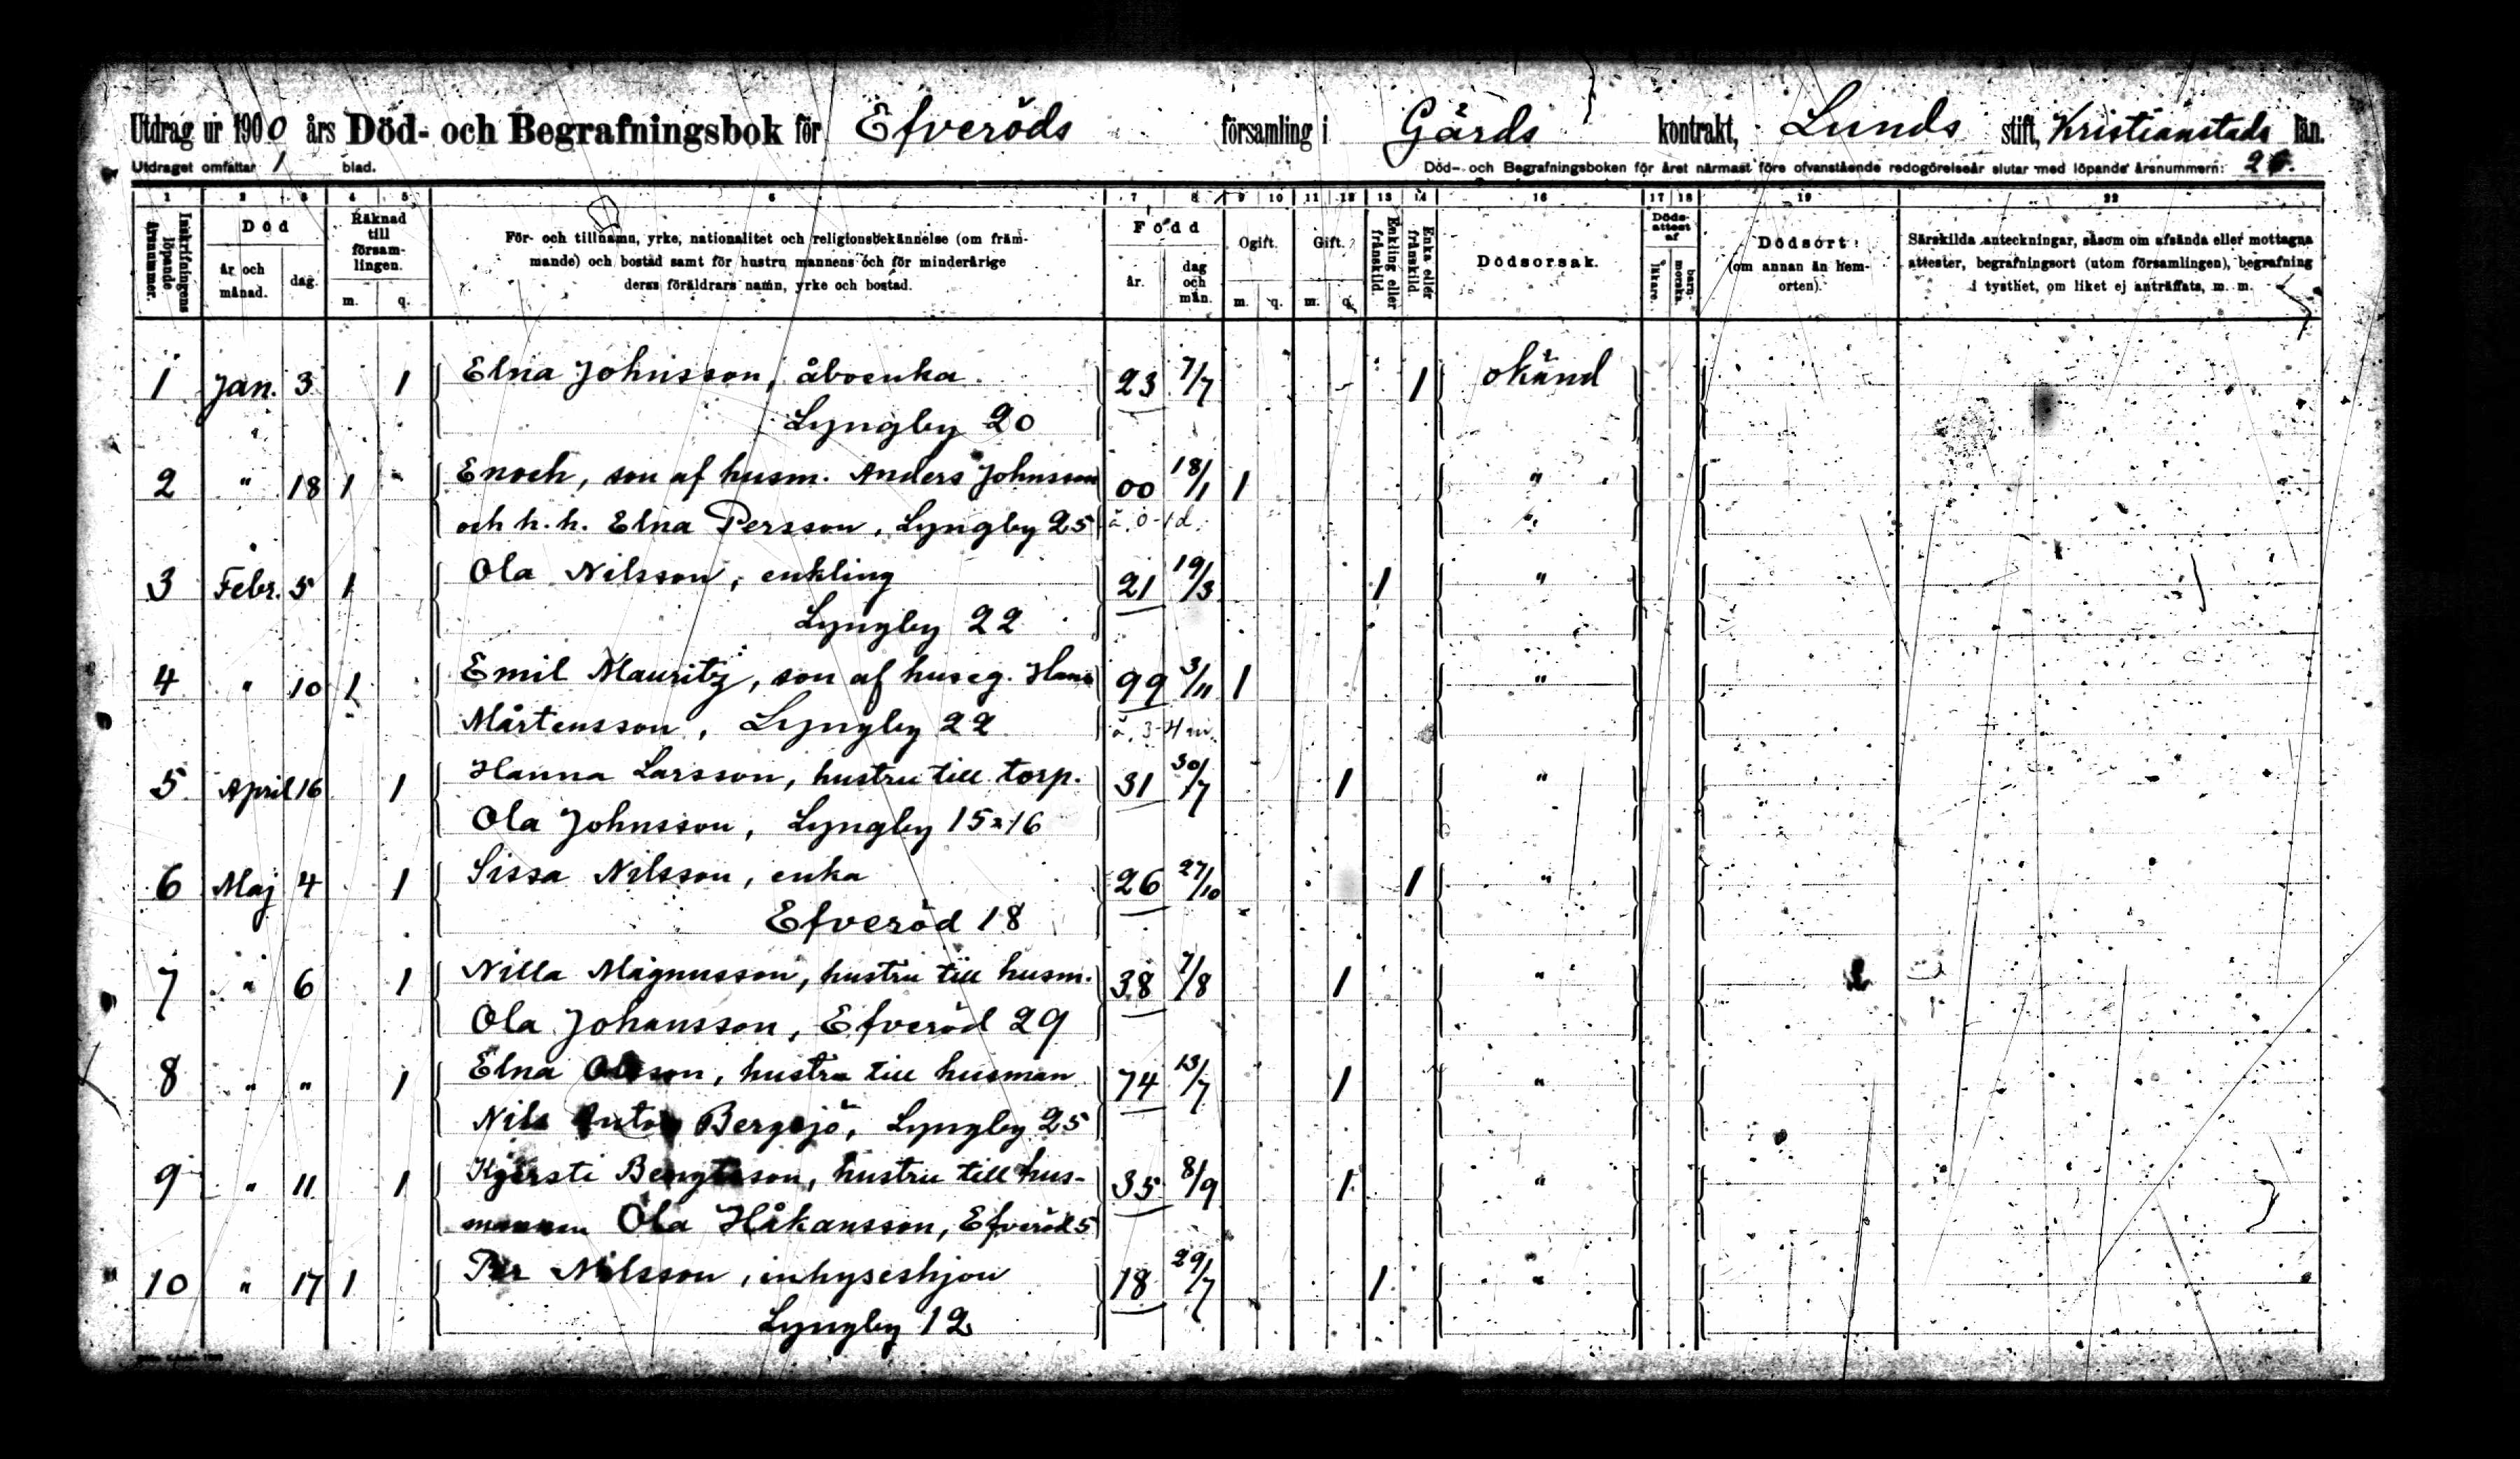 Utdrag ur 1900 års Död- och Begrafningsbok för Efveröds församling i Gärds kontrakt, Lunds stift, Kristianstads län.
Utdraget omfattar 1 blad. Död- och Begrafningsboken för året närmast före ofvanstående redogörelseår slutar med löpande årsnummern:
1 2 3 4 5 6 7 8 9 10 11 12 13 14 16 17 18 19 22
Inskrifningens löpande årsnummer.
Död
år och månad.
dag.
Räknad till försam-lingen.
m. q.
För- och tillnamn, yrke, nationalitet och religionsbekännelse (om främ-
mande) och bostad samt för hustru mannens och för minderårige
deras föräldrars namn, yrke och bostad.
Född
år.
dag och mån.
Ogift.
m. q.
Gift.
m. q.
Enkling eller frånskild.
Enka eller frånskild.
Dödsorsak.
Döds-attest af
läkare.
barn-morska.
Dödsort
(om annan än hem-
orten).
Särskilda anteckningar, såsom om afsända eller mottagna
attester, begrafningsort (utom församlingen), begrafning
i tysthet, om liket ej anträffats, m. m.
1 Jan. 3 1 Elna Johnsson, åboenka 23 7/7 1 okänd
Lyngby 20
2 " 18 1 Enoch, son af husm. Anders Johnsson 00 18/1 1 "
och h. h. Elna Persson, Lyngby 25 ä. 0-1 d.
3 Febr. 5 1 Ola Nilsson, enkling 21 19/3 1 "
Lyngby 22
4 " 10 1 Emil Mauritz, son af huseg. Hans 99 3/11 1 "
Mårtensson, Lyngby 22 ä. 3-4 m.
5 April 16 1 Hanna Larsson, hustru till torp. 31 30/7 1 "
Ola Johnsson, Lyngby 15 & 16
6 Maj 4 1 Sissa Nilsson, enka 26 27/10 1 "
Efveröd 18
7 " 6 1 Nilla Magnusson, hustru till husm. 38 7/8 1 "
Ola Johansson, Efveröd 29
8 " " 1 Elna Olsson, hustru till husman 74 13/7 1 "
Nils Anton Bergsjö, Lyngby 25
9 " 11 1 Kjersti Bengtsson, hustru till hus- 35 8/9 1 "
mannen Ola Håkansson, Efveröd 5
10 " 17 1 Per Nilsson, inhyseshjon 18 29/7 1 "
Lyngby 12